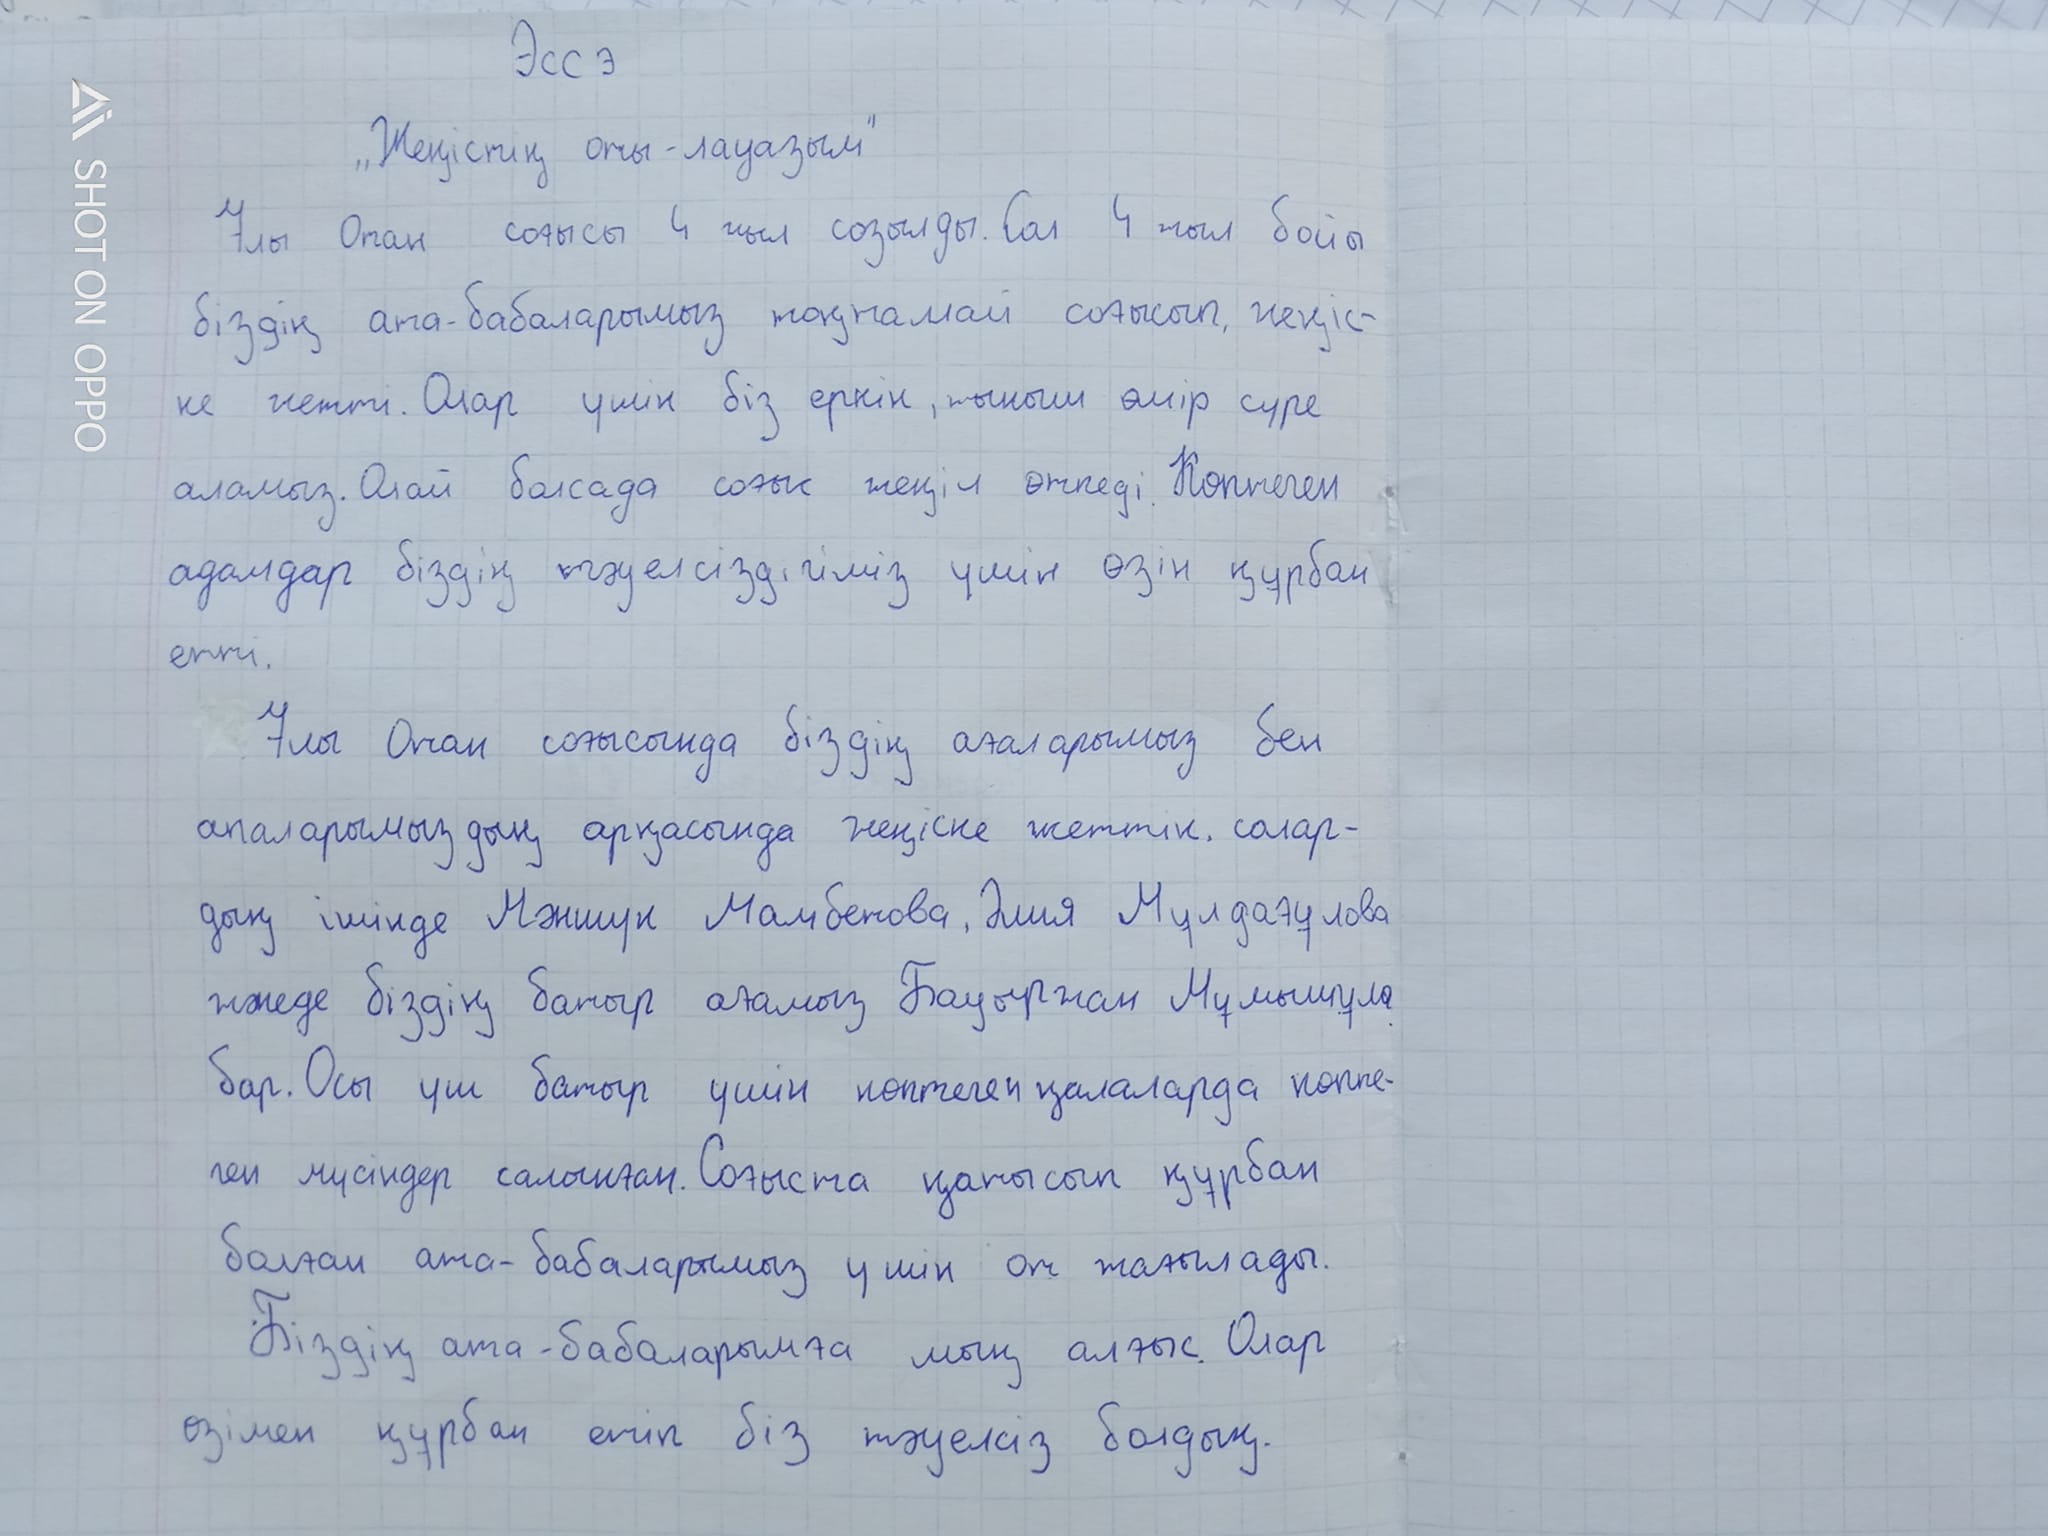 Эссэ
„Жеңістің оты-лауазым"
Ұлы Отан соғысы 4 жыл созылды. Сол 4 жыл бойы
біздің ата-бабаларымыз тоқтамай соғысып, жеңіс-
ке жетті. Олар үшін біз еркін, тыныш өмір сүре
аламыз. Олай болсада соғыс жеңіл өтпеді. Көптеген
адамдар біздің тәуелсіздігіміз үшін өзін құрбан
етті.
Ұлы Отан соғысында біздің ағаларымыз бен
апаларымыздың арқасында жеңіске жеттік. солар-
дың ішінде Мәншүк Мамбетова, Әлия Мұлдағұлова
жәнеде біздің батыр ағамыз Бауыржан Мұмышұлы
бар. Осы үш батыр үшін көптеген қалаларда көпте-
ген мүсіндер салынған. Соғыста қатысып құрбан
болған ата-бабаларымыз үшін от жағылады.
Біздің ата-бабаларымға мың алғыс. Олар
өзімен құрбан етіп біз тәуелсіз болдық.
SHOT ON OPPO